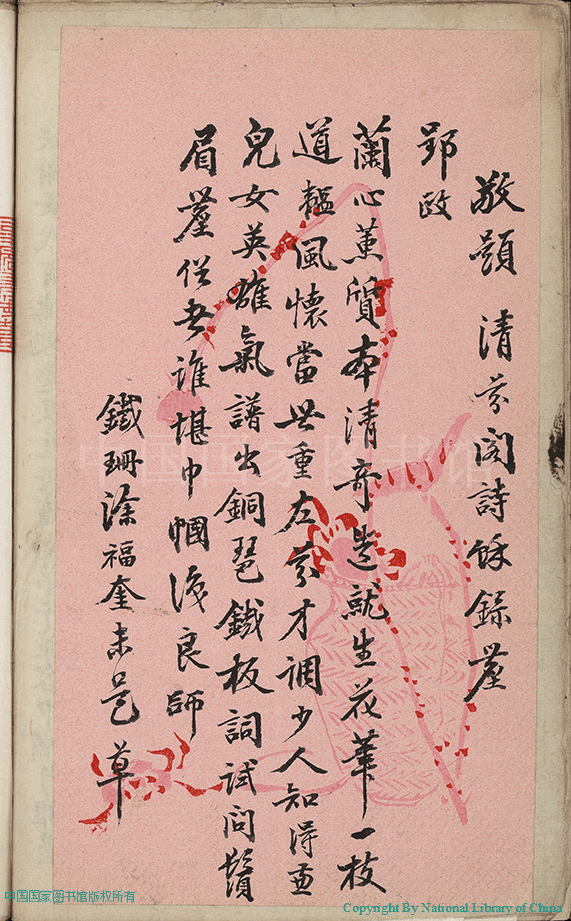 敬題 清芬閣詩錄
郢政
蘭心蕙質本清奇造就生花筆一枝
道韞風懷當世重左芬才調少人知得
兒女英雄氣譜出銅琶鐵板詞試問鬚
眉誰堪巾幗後良師
鐵珊涂福奎未是草
中国国家图书馆
中国国家图书馆版权所有
Copyright By National Library of China